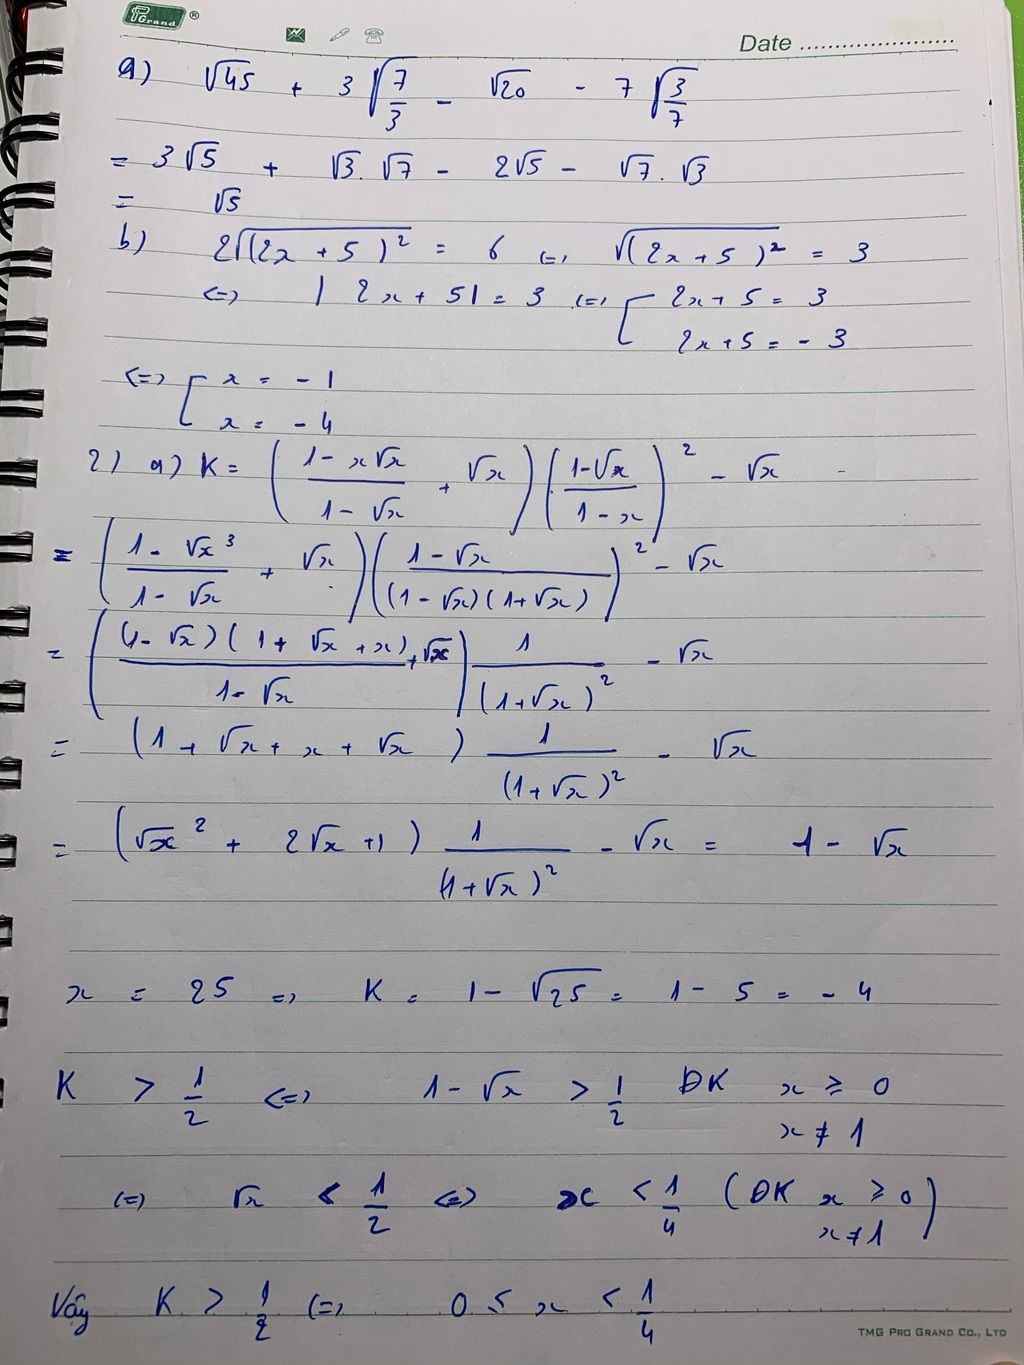 PGrand ®
Date ........................
a) √45 + 3√(7/3) - √20 - 7√(3/7)
= 3√5 + √3.√7 - 2√5 - √7.√3
= √5
b) 2√((2x+5)²) = 6 (=) √((2x+5)²) = 3
<=> |2x+5| = 3 (=) [ 2x+5 = 3
2x+5 = -3
<=> [ x = -1
x = -4
2) a) K = ((1-x√x)/(1-√x) + √x)((1-√x)/(1-x))² - √x
= ((1-√x³)/(1-√x) + √x)((1-√x)/((1-√x)(1+√x)))² - √x
= (((1-√x)(1+√x+x))/(1-√x) + √x) 1/(1+√x)² - √x
= (1+√x+x+√x) 1/(1+√x)² - √x
= (√x² + 2√x+1) 1/(1+√x)² - √x = 1-√x
x = 25 => K = 1-√25 = 1-5 = -4
K > 1/2 <=> 1-√x > 1/2 ĐK x ≥ 0
x ≠ 1
(=) √x < 1/2 <=> x < 1/4 (ĐK x ≥ 0
x ≠ 1)
Vậy K > 1/2 (=) 0 ≤ x < 1/4
TMG PRO GRAND CO., LTD